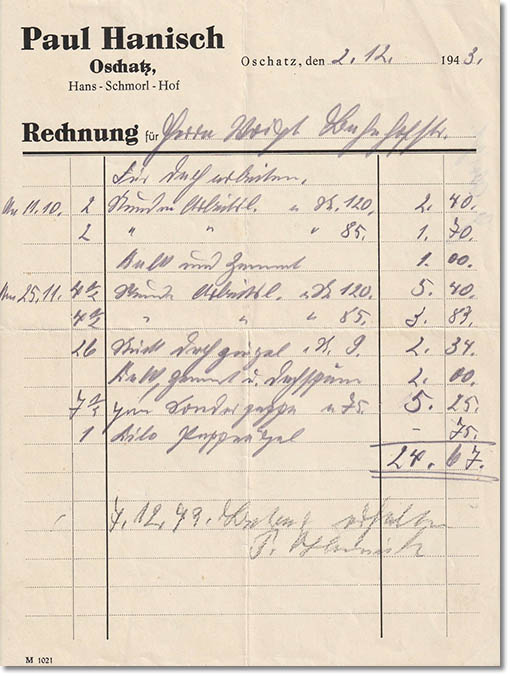 Paul Hanisch
Oschatz,
Hans-Schmorl-Hof
Oschatz, den 2.12. 1943.
Rechnung für Herrn Voigt Bahnhofstr.
Für Dacharbeiten.
Am 11.10. 2 Stunden Arbeitsl. a M. 120. 2. 40.
2 " " " 85. 1. 70.
Kalk und Zement 1. 00.
Am 25.11. 4 1/2 Stunde Arbeitsl. a M 120. 5. 40.
4 1/2 " " " 85. 3. 83.
26 Stück Dachziegel a N. 9. 2. 34.
Kalk, Zement u. Dachspäne 2. 00.
7 qm Sonderpappe a 75. 5. 25.
1 Kilo Pappnägel - 75.
24. 67.
7.12.43. Betrag erhalten
P. Hanisch
M 1021